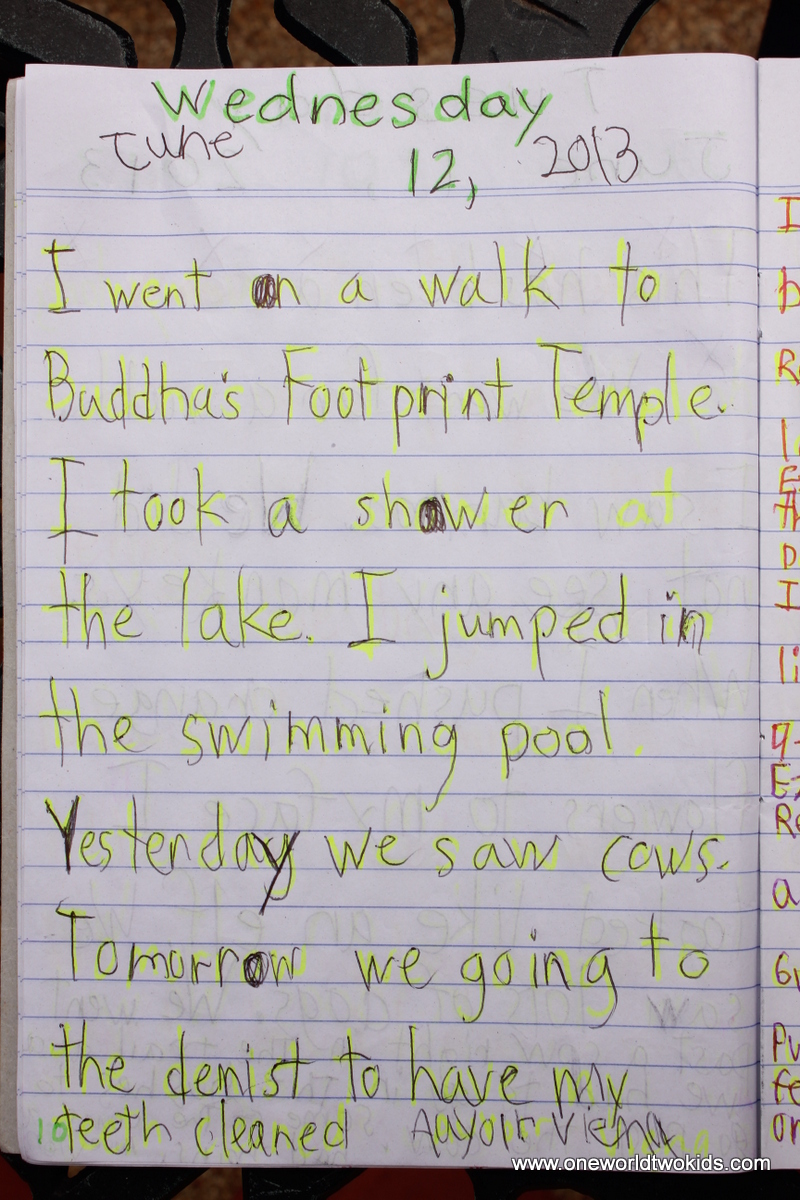 Wednesday
June 12, 2013
I went on a walk to
Buddha's Footprint Temple.
I took a shower at
the lake. I jumped in
the swimming pool.
Yesterday we saw cows.
Tomorrow we going to
the denist to have my
teeth cleaned
10
I
b
Re
la
E
th
p
I
li
Re
a
Pu
fe
or
www.oneworldtwokids.com